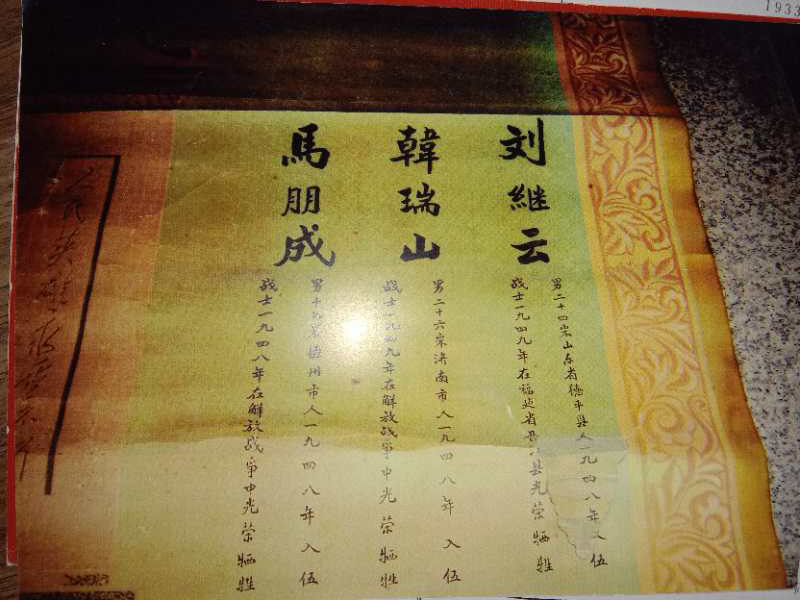 1933
刘继云
男二十四岁山东省德平县人一九四八年入伍
战士一九四九年在福建省 县光荣牺牲
韓瑞山
男二十六岁济南市人一九四八年入伍
战士一九四九年在解放战争中光荣牺牲
馬朋成
男十九岁德州市人一九四八年入伍
战士一九四八年在解放战争中光荣牺牲
人民英雄永垂不朽